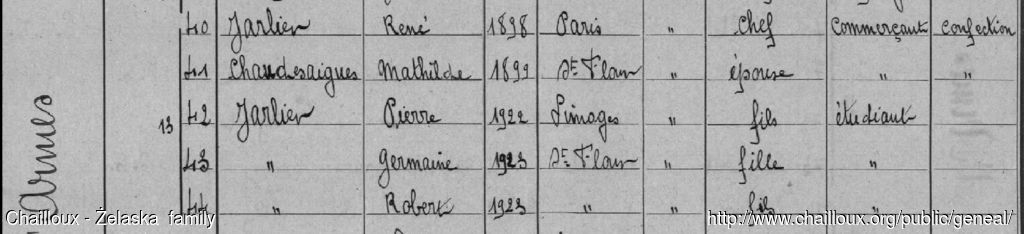 40 Jarlier René 1898 Paris " chef commerçant confection
41 Chaudesaigues Mathilde 1899 St Flour " épouse " "
13 42 Jarlier Pierre 1922 Limoges " fils étudiant
43 " Germaine 1923 St Flour " fille "
44 " Robert 1923 " " fils
Armes
Chailloux - Żelaska family
http://www.chailloux.org/public/geneal/